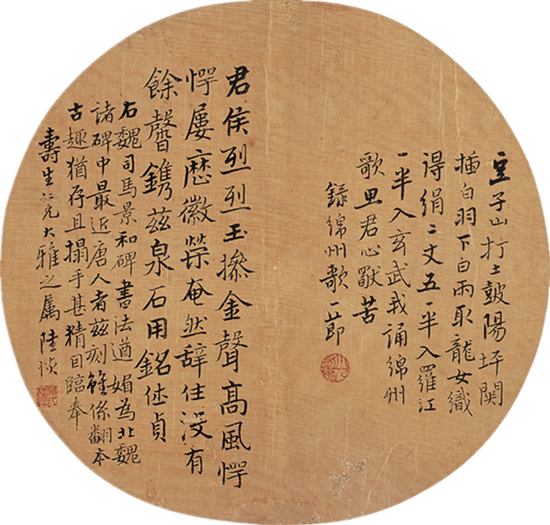 豆子山打土皷陽坪關
白羽下白雨取龍女織
得絹二丈五一半入羅江
一半入玄武我誦綿州
歌思君心苦
錄綿州歌一節
君侯烈烈玉摻金聲高風愕
愕屢歷徽榮奄然辭住沒有
餘馨鐫茲泉石用銘休貞
右魏司馬景和碑書法遒媚為北魏
諸碑中最近唐人者茲刻雖係翻本
古趣猶存且搨手甚精因臨奉
壽生兄大雅之屬陸